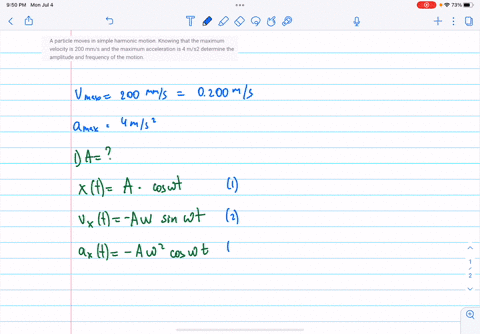 9:50 PM Mon Jul 4
73%
A particle moves in simple harmonic motion. Knowing that the maximum
velocity is 200 mm/s and the maximum acceleration is 4 m/s2 determine the
amplitude and frequency of the motion.
Vmax = 200 mm/s = 0.200 m/s
amax = 4 m/s²
1) A = ?
x(t) = A · cos ωt (1)
vx(t) = -Aω sin ωt (2)
ax(t) = -Aω² cos ωt (
1
2